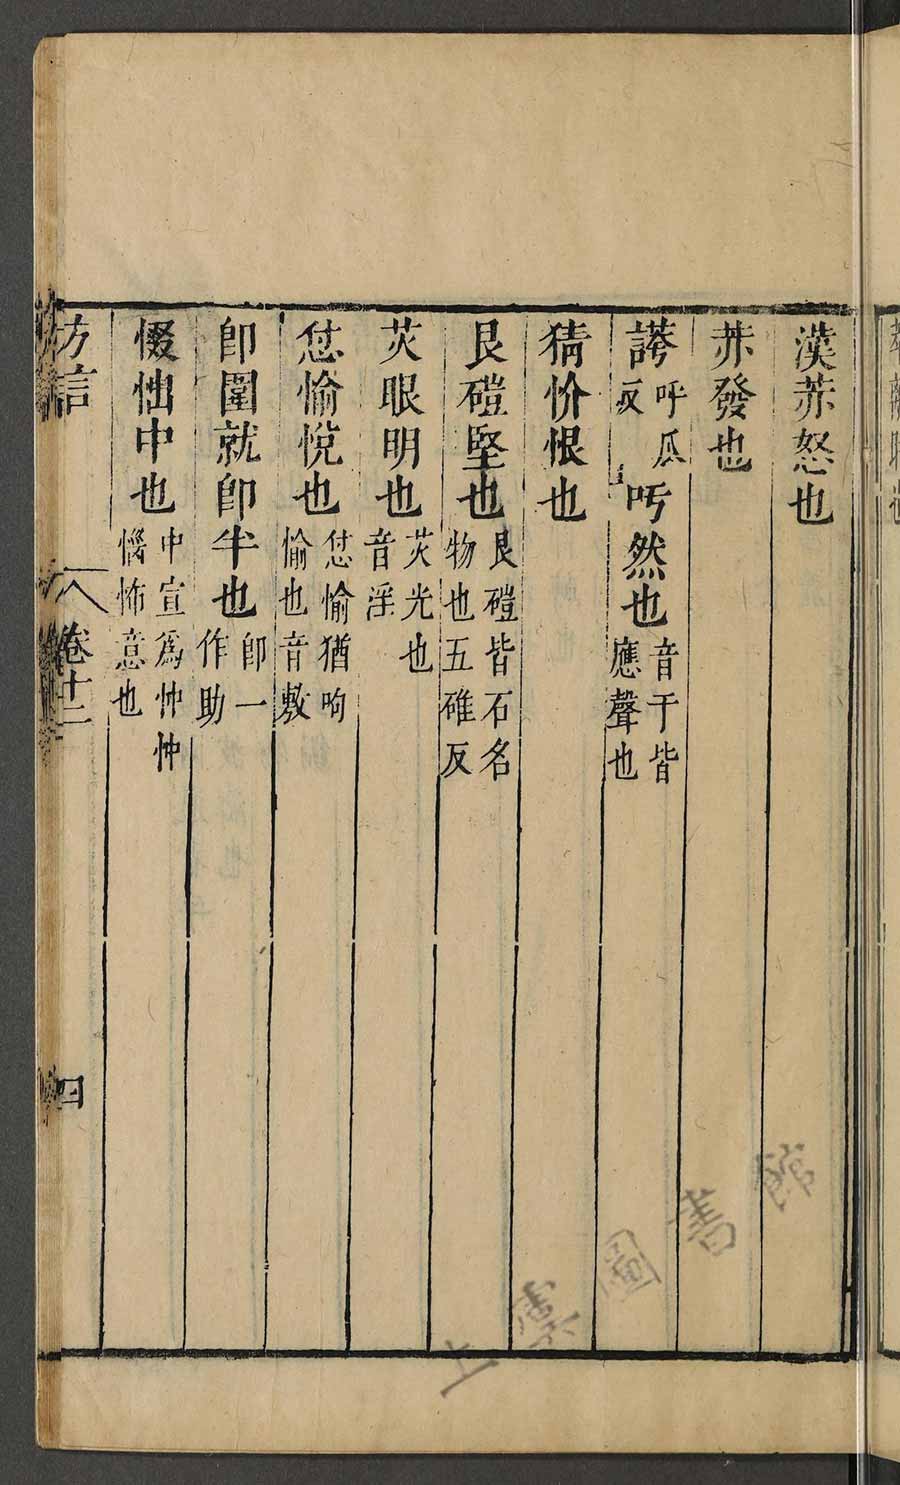 漢赤怒也
赤發也
謣呼瓜反吁然也音于皆應聲也
猜价恨也
艮磑堅也艮磑皆石名物也五碓反
炗眼明也炗光也音淫
㤩愉悅也㤩愉猶呴愉也音敷
卽圍就卽半也卽一作助
惙怞中也中宣爲忡忡惱怖意也
方言 卷十二 四
上虞圖書館